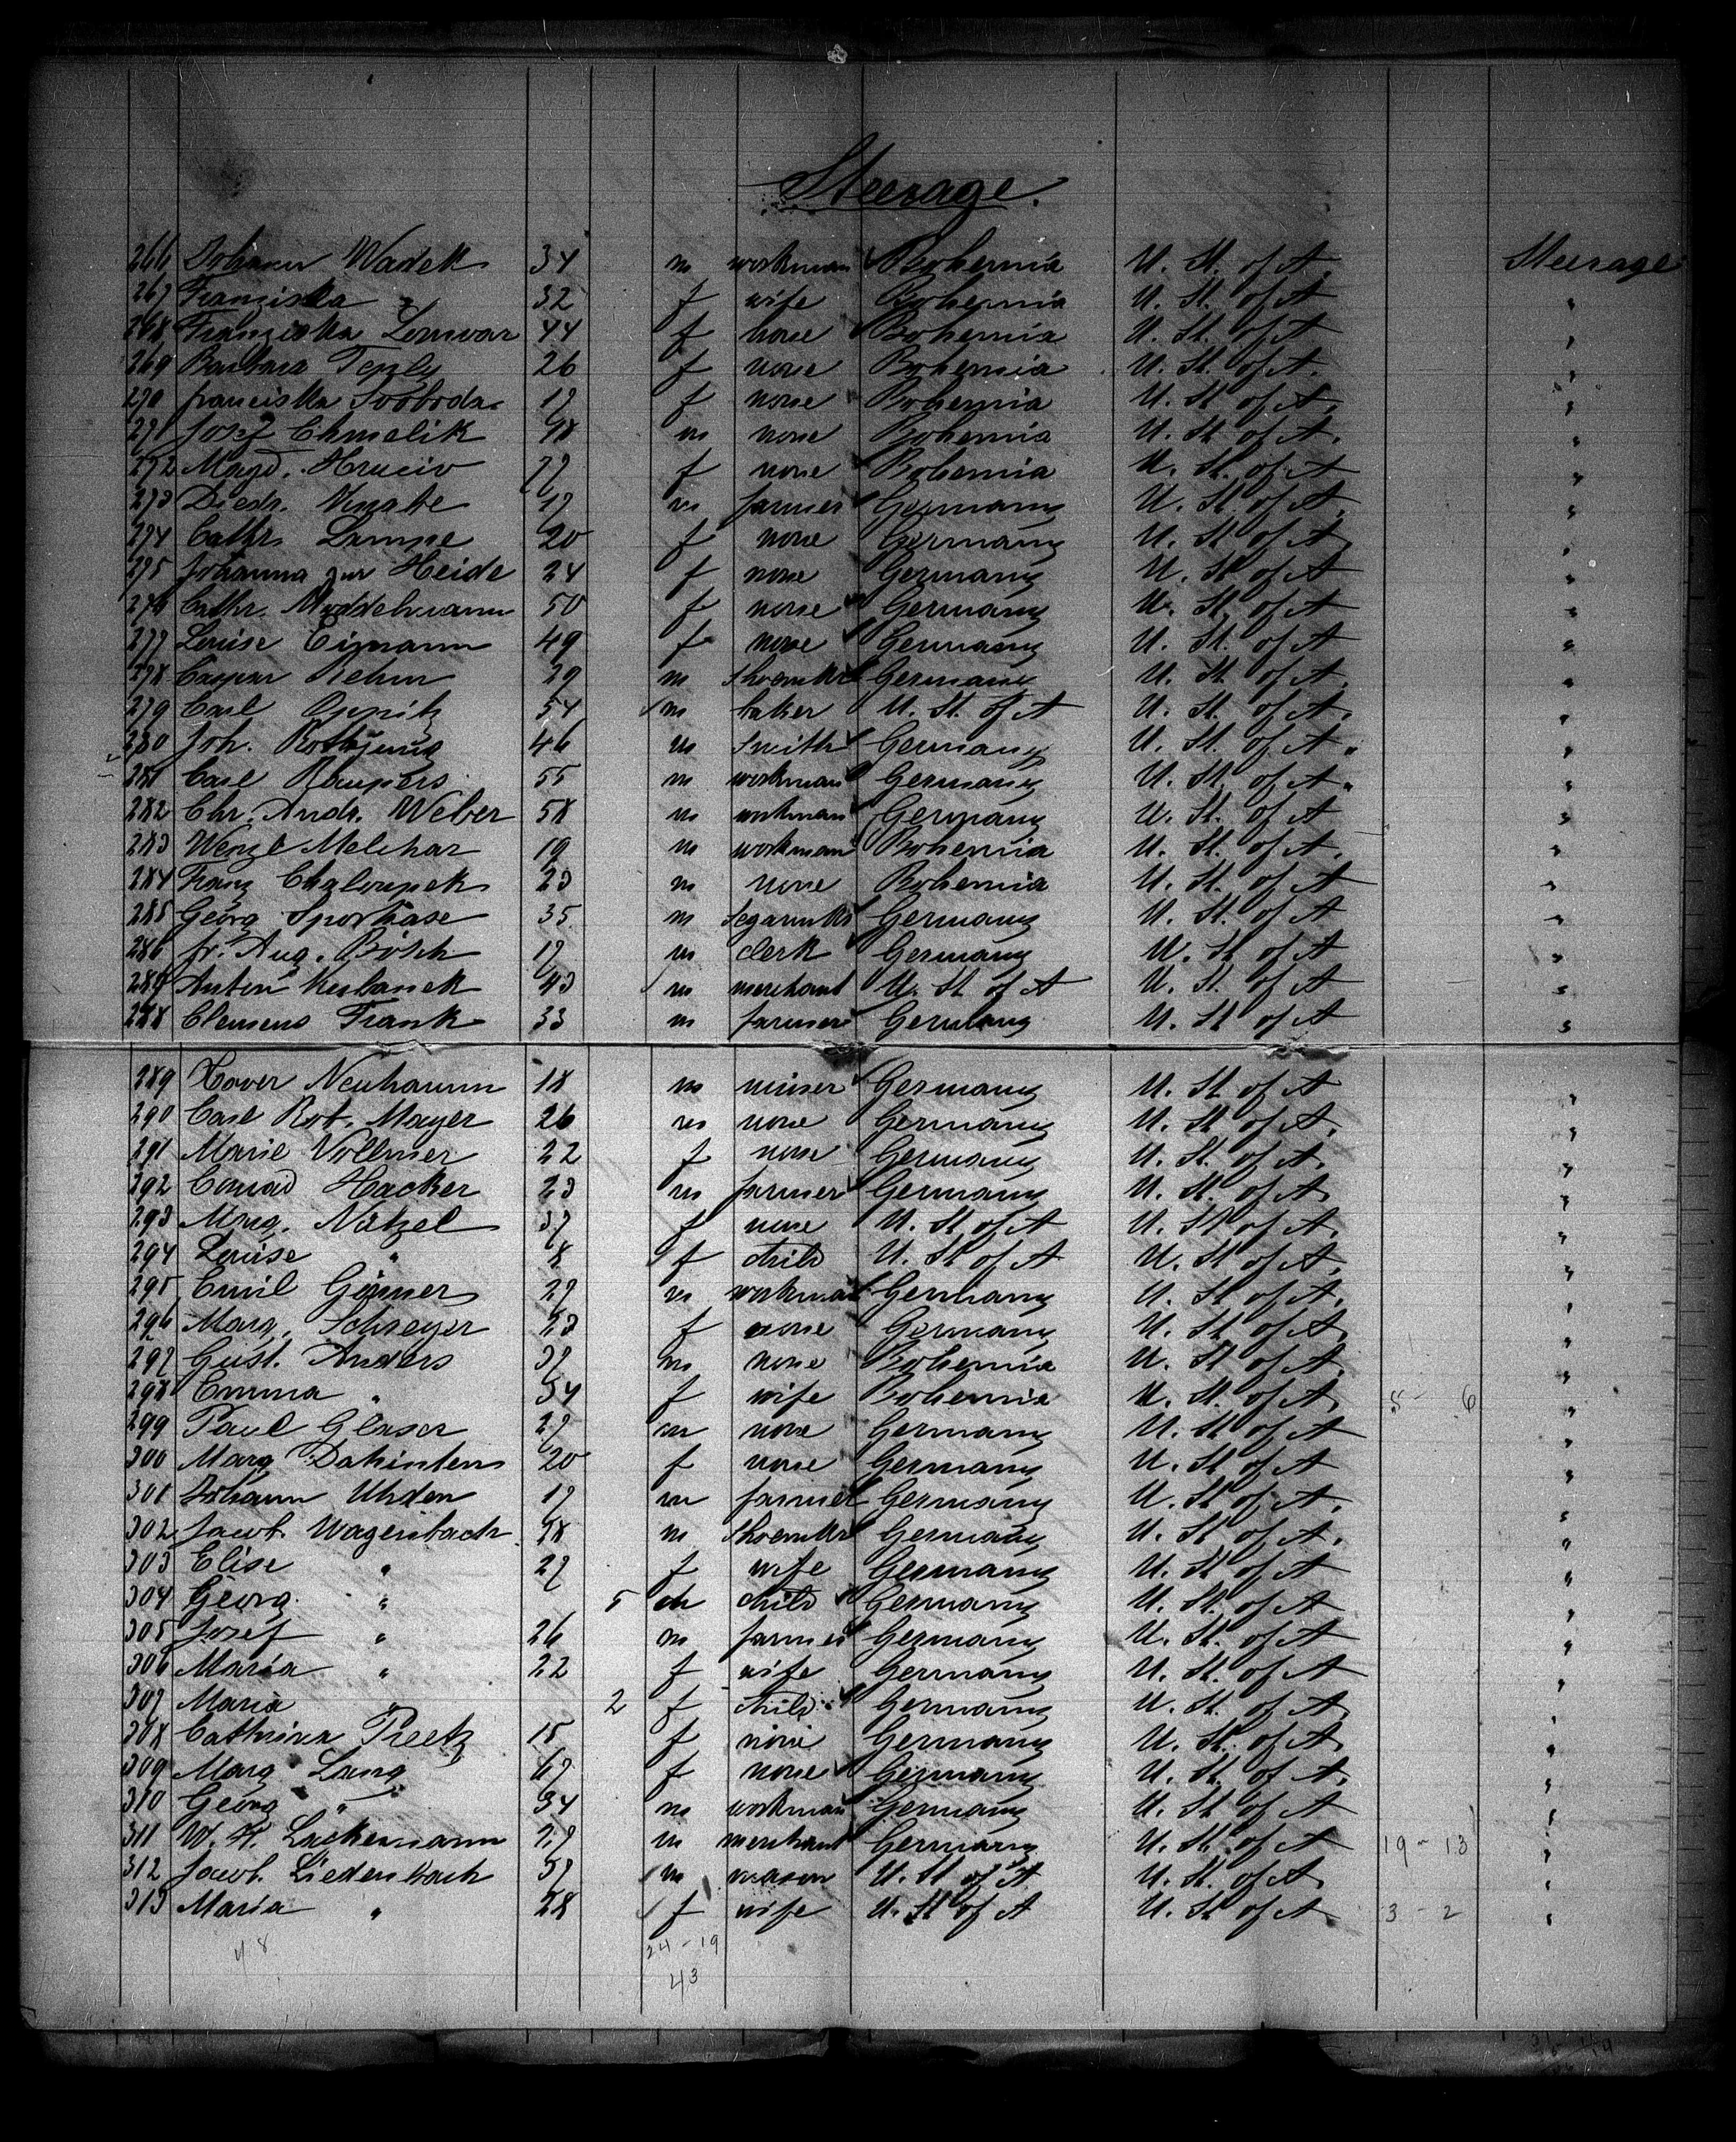 Steerage.
266 Johann Wadek 34 m workman Bohemia U. St. of A. Steerage
267 Franziska " 32 f wife Bohemia U. St. of A "
268 Franziska Lomwar 44 f none Bohemia U. St. of A "
269 Barbara Teply 26 f none Bohemia U. St. of A. "
270 Franciska Svoboda 17 f none Bohemia U. St. of A. "
271 Josef Chmelik 48 m none Bohemia U. St. of A. "
272 Magd. f none Bohemia U. St. of A "
273 Diedr. 17 m farmer Germany U. St. of A. "
274 Cathr. Lampe 20 f none Germany U. St. of A "
275 Johanna zur Heide 24 f none Germany U. St. of A "
276 Cathr. Middelmann 50 f none Germany U. St. of A "
277 Louise Eimann 49 f none Germany U. St. of A "
278 Caspar Rehm 29 m Shoemkr Germany U. St. of A. "
279 Carl Opnitz 54 m baker U. St. of A U. St. of A. "
280 Joh. 46 m Smith Germany U. St. of A. "
281 Carl Raupers 55 m workman Germany U. St. of A. "
282 Chr. Andr. Weber 58 m workman Germany U. St. of A "
283 Wenzl Melchar 19 m workman Bohemia U. St. of A. "
284 Franz Chaloupek 23 m none Bohemia U. St. of A "
285 Georg Sporhase 35 m Segarmkr Germany U. St. of A "
286 Fr. Aug. Bösch 17 m clerk Germany U. St. of A "
287 Anton 43 m merchant U. St of A U. St. of A "
288 Clemens Frank 33 m farmer Germany U. St of A "
289 Xaver Neuhaum 18 m miner Germany U. St of A "
290 Carl Rob. Mayer 26 m none Germany U. St of A. "
291 Marie Vollmer 22 f none Germany U. St. of A. "
292 Conrad Hacker 23 m farmer Germany U. St. of A "
293 Marg. Nätzel 37 f none U. St of A U. St of A. "
294 Louise " 8 f child U. St of A U. St of A. "
295 Emil Gönner 27 m workman Germany U. St of A. "
296 Marg. Schreyer 23 f none Germany U. St of A. "
297 Gust. Anders 37 m none Bohemia U. St of A. "
298 Emma " 34 f wife Bohemia U. St. of A. 5 - 6 "
299 Paul Glaser 27 m none Germany U. St of A "
300 Marg Dahinten 20 f none Germany U. St of A "
301 Johann Uhden 17 m farmer Germany U. St of A. "
302 Jacob Wagenbach 38 m Shoemkr Germany U. St of A. "
303 Elise " 27 f wife Germany U. St of A "
304 Georg " 5 m child Germany U. St. of A "
305 Josef " 26 m farmer Germany U. St. of A "
306 Maria " 22 f wife Germany U. St. of A "
307 Maria 2 f child Germany U. St. of A "
308 Cathrina Pleetz 15 f none Germany U. St. of A "
309 Marg Lang 67 f none Germany U. St of A. "
310 Georg " 34 m workman Germany U. St of A "
311 W. H. Lackemann 27 m merchant Germany U. St of A 19 - 13 "
312 Jacob Liedenbach 57 m mason U. St of A U. St. of A "
313 Maria " 28 f wife U. St of A U. St of A 3 - 2 "
48 24 - 19
43